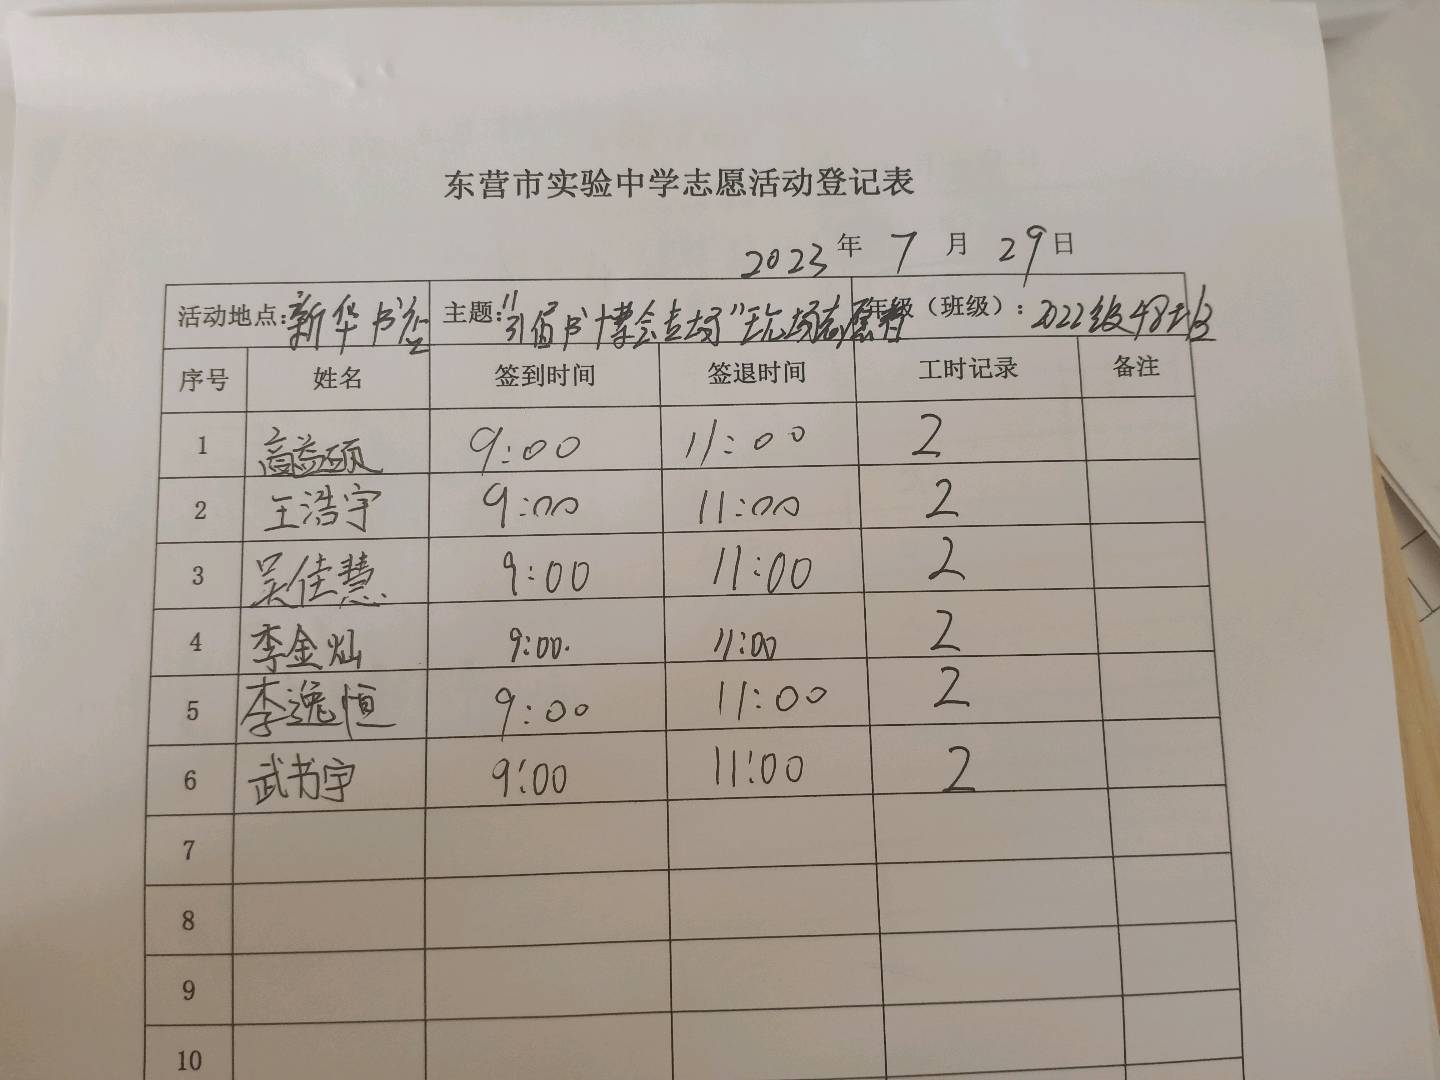 东营市实验中学志愿活动登记表
2023年 7月 29日
活动地点:新华书店 主题: 书博会主场"现场志愿者 年级（班级）: 2022级48班
序号 姓名 签到时间 签退时间 工时记录 备注
1 高益硕 9:00 11:00 2
2 王浩宇 9:00 11:00 2
3 吴佳慧 9:00 11:00 2
4 李金灿 9:00 11:00 2
5 李逸恒 9:00 11:00 2
6 武书宇 9:00 11:00 2
7
8
9
10